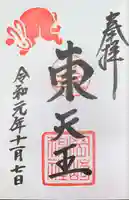 奉拝
東天王
令和元年十一月七日